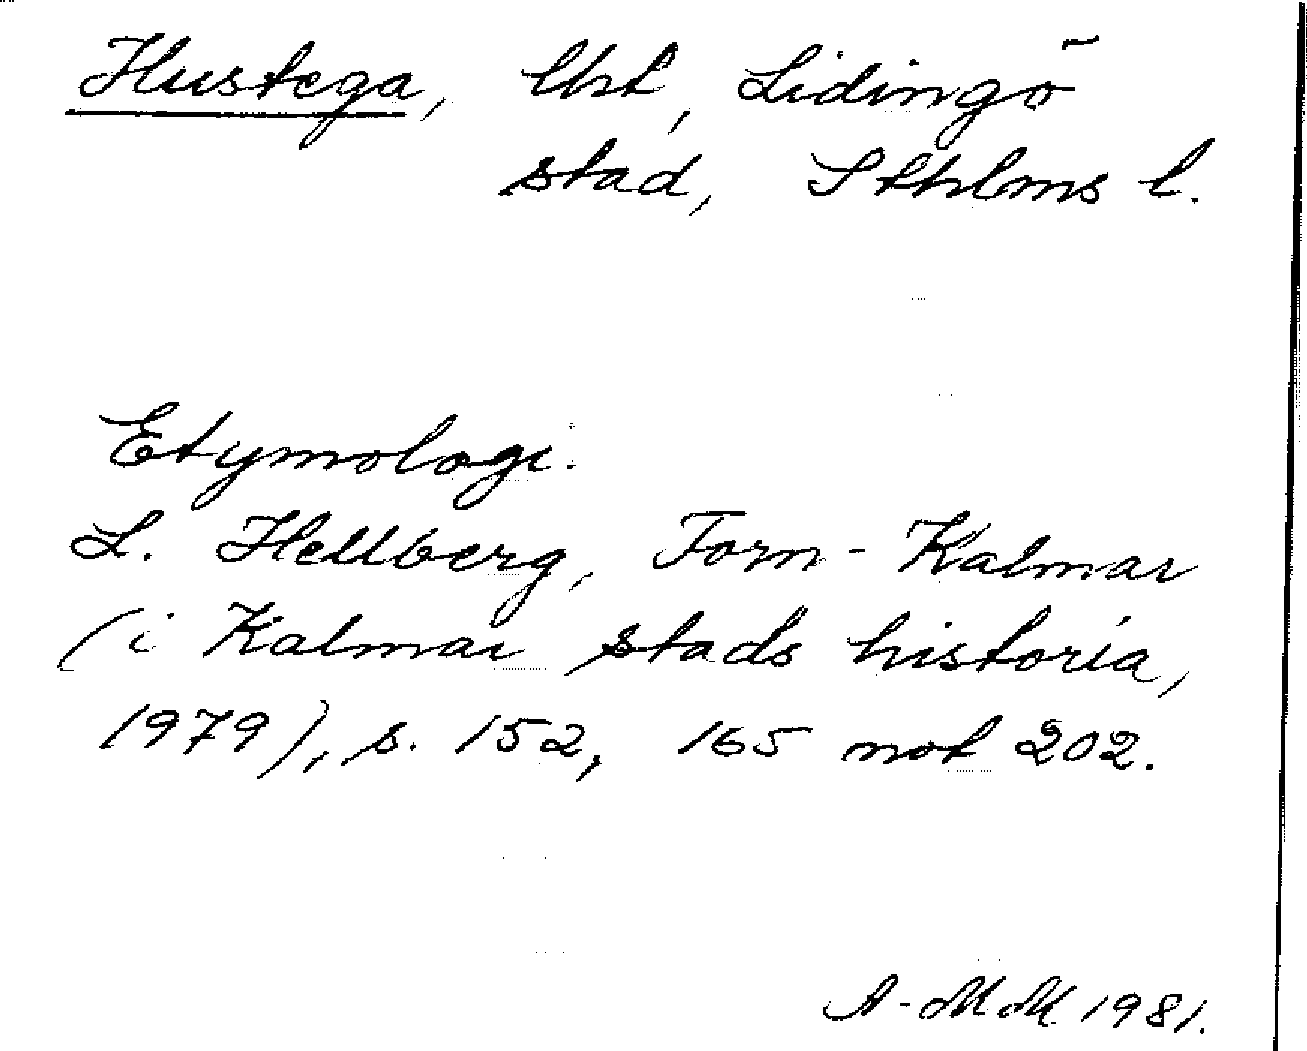 Hustega, lht, Lidingö
stad, Sthlms l.
Etymologi:
L. Hellberg, Forn-Kalmar
(i Kalmar stads historia,
1979), s. 152, 165 not 202.
A-MM 1981.